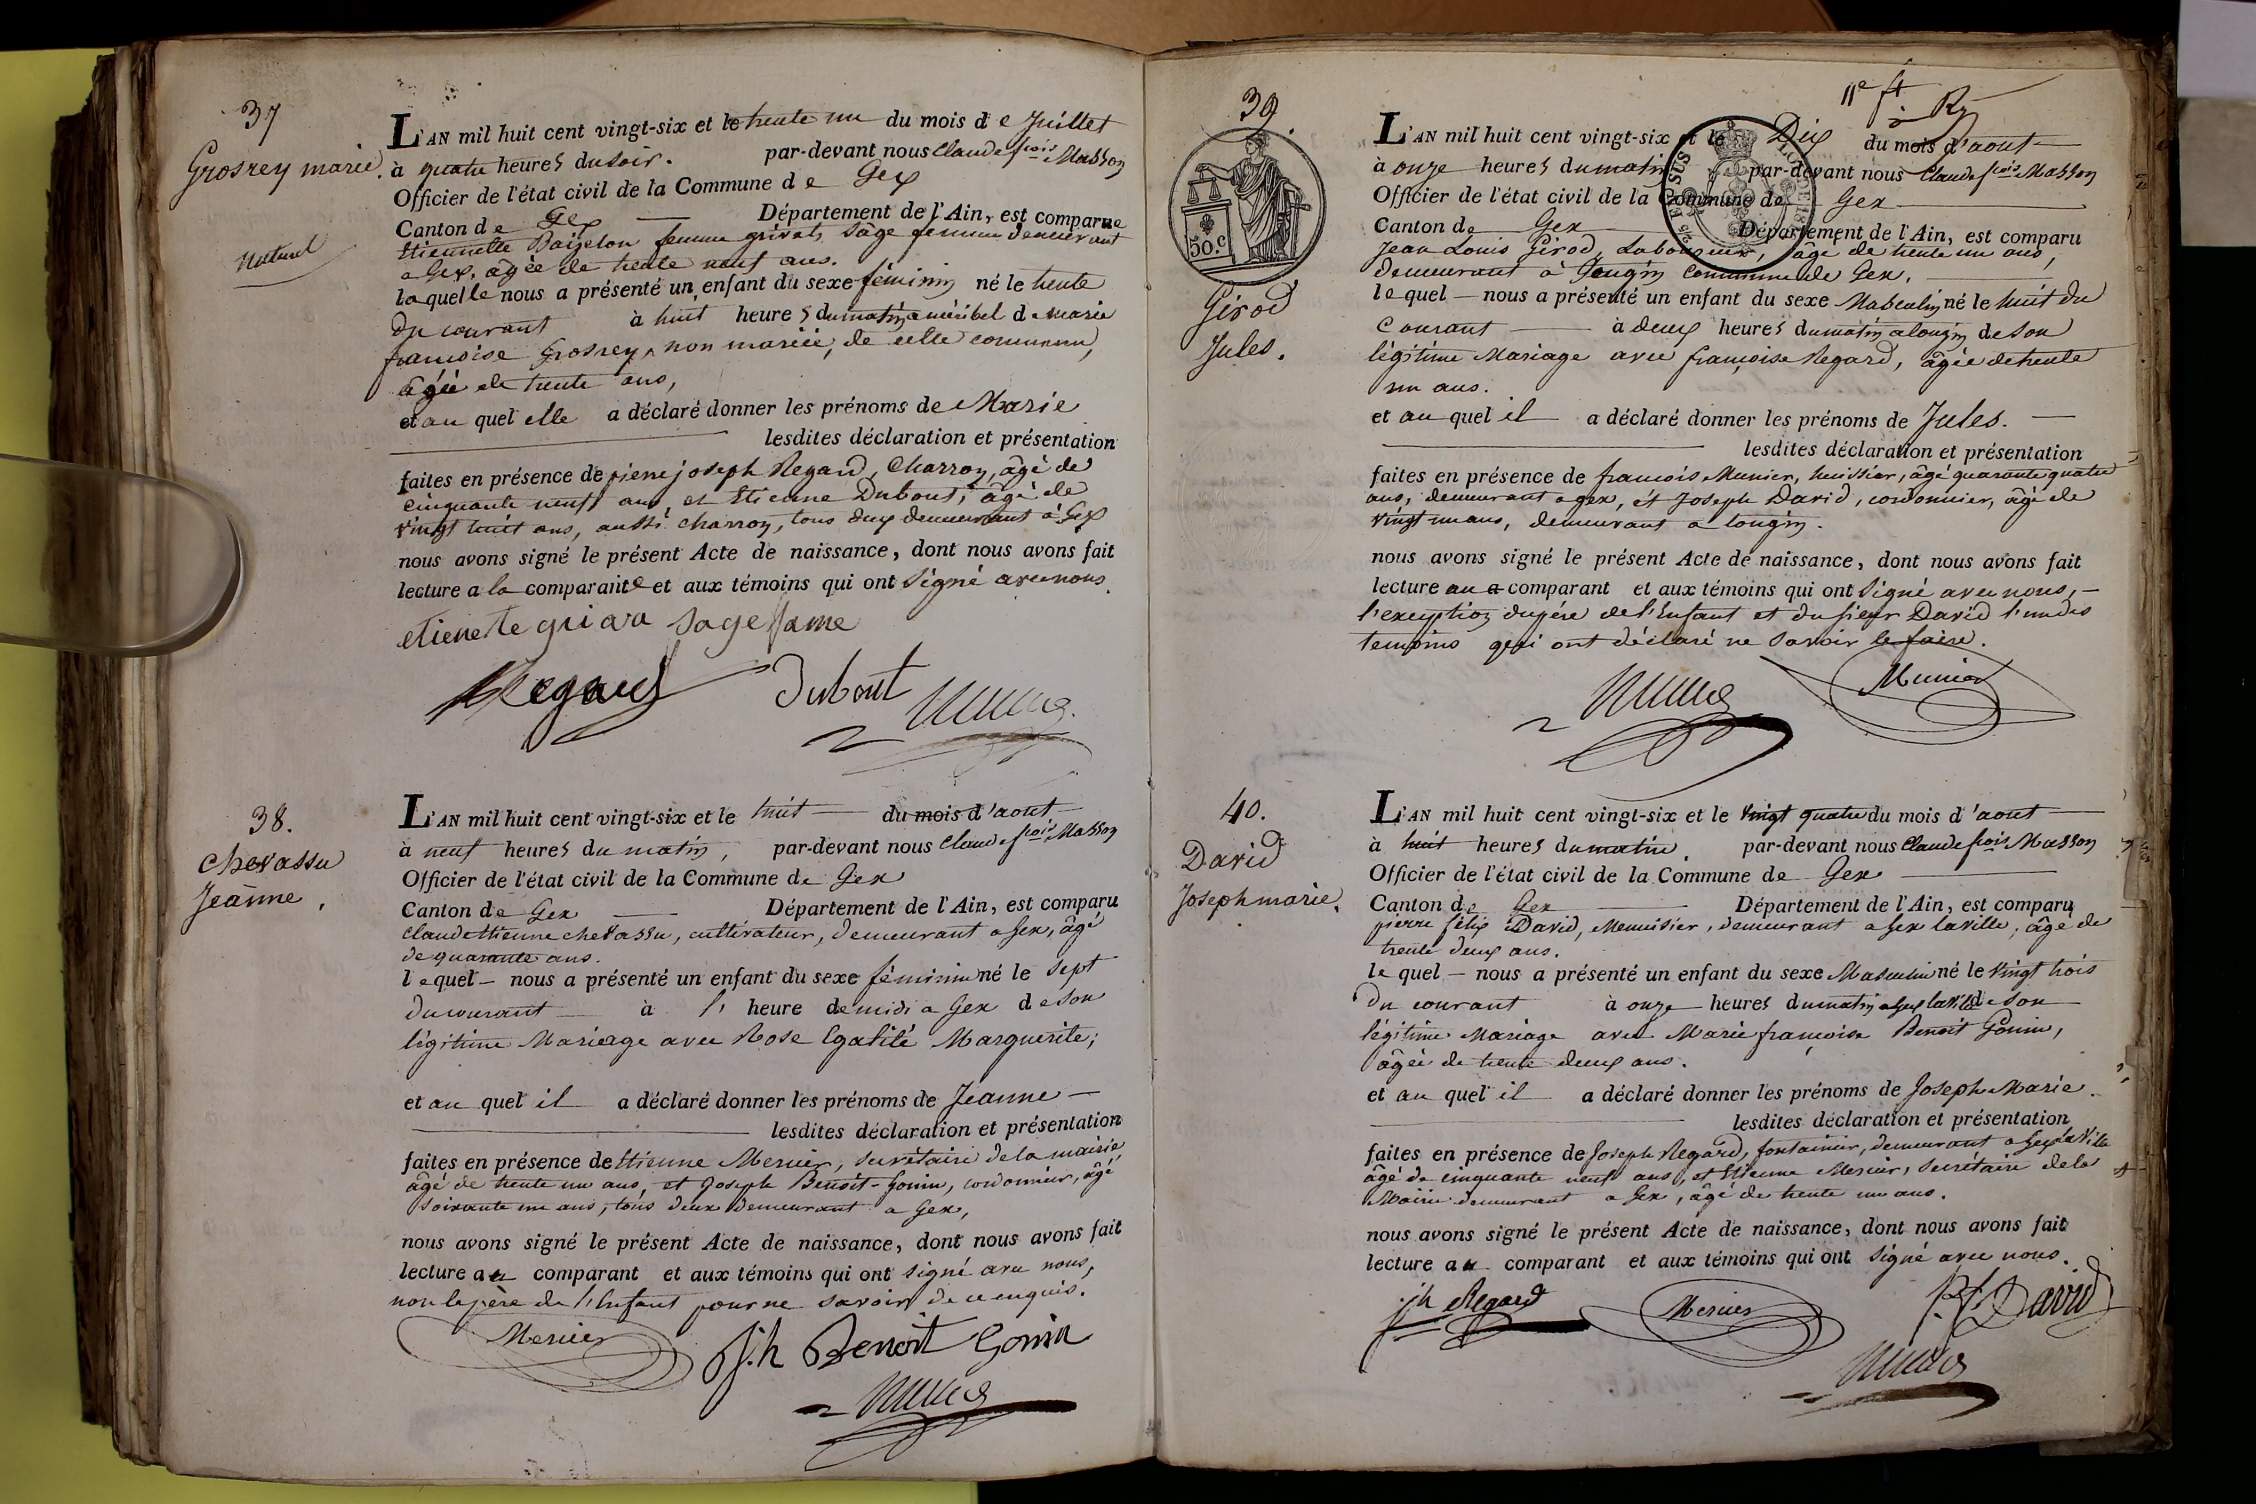 37
Grosrey marie.
Naturel
L'AN mil huit cent vingt-six et le trente un du mois de Juillet
à quatre heures du soir. par-devant nous Claude fçois Masson
Officier de l'état civil de la Commune de Gex
Canton de Gex Département de l'Ain, est comparue
Etiennette femme grivat, sage femme demeurant
a Gex, âgée de trente neuf ans.
laquelle nous a présenté un enfant du sexe féminin né le trente
du courant à huit heures du matin a méribel de marie
françoise Grosrey, non mariée, de cette commune,
âgée de trente ans,
et au quel elle a déclaré donner les prénoms de Marie
lesdites déclaration et présentation
faites en présence de pierre joseph Regard, Charron, âgé de
cinquante neuf ans et Etienne Dubout, âgé de
vingt huit ans, aussi charron, tous deux demeurant à Gex
nous avons signé le présent Acte de naissance, dont nous avons fait
lecture a la comparante et aux témoins qui ont signé avec nous.
etienete sage fame
Regard Dubout
38.
Chevassu
Jeanne,
L'AN mil huit cent vingt-six et le huit du mois d'aout
à neuf heures du matin, par-devant nous Claude fçois Masson
Officier de l'état civil de la Commune de Gex
Canton de Gex Département de l'Ain, est comparu
Claud etienne chevassu, cultivateur, demeurant a Gex, âgé
de quarante ans.
lequel nous a présenté un enfant du sexe féminin né le sept
du courant à l' heure de midi a Gex de son
légitime Mariage avec Rose Egalité Marguerite;
et au quel il a déclaré donner les prénoms de Jeanne
lesdites déclaration et présentation
faites en présence de Etienne Mercier, secrétaire de la mairie,
âgé de trente un ans, et Joseph Benoit-Gonin, cordonnier, âgé
soixante un ans, tous deux demeurant a Gex,
nous avons signé le présent Acte de naissance, dont nous avons fait
lecture au comparant et aux témoins qui ont signé avec nous,
non le père de l'Enfant pour ne savoir de ce enquis.
Mercier J.h Benoit Gonin
39.
50.c
Girod
Jules.
L'AN mil huit cent vingt-six et le Dix du mois d'aout
à onze heures du matin par-devant nous Claude fçois Masson
Officier de l'état civil de la Commune de Gex
Canton de Gex Département de l'Ain, est comparu
Jean Louis Girod, Laboureur, âgé de trente un ans,
demeurant à Tougin commune de Gex.
lequel nous a présenté un enfant du sexe Masculin né le huit du
Courant à deux heures du matin a tougin de son
légitime Mariage avec françoise Regard, âgée de trente
un ans.
et au quel il a déclaré donner les prénoms de Jules.
lesdites déclaration et présentation
faites en présence de francois Munier, huissier, âgé quarante quatre
ans, demeurant a gex, et Joseph David, cordonnier, âgé de
vingt un ans, demeurant a tougin.
nous avons signé le présent Acte de naissance, dont nous avons fait
lecture au comparant et aux témoins qui ont signé avec nous,
l'exception du père de l'Enfant et du sieur David l'un des
temoins qui ont déclaré ne savoir le faire.
Munier
40.
David
Joseph marie.
L'AN mil huit cent vingt-six et le vingt quatre du mois d'aout
à huit heures du matin. par-devant nous Claude fçois Masson
Officier de l'état civil de la Commune de Gex
Canton de Gex Département de l'Ain, est comparu
pierre félix David, Menuisier, demeurant a Gex la ville, âgé de
trente deux ans.
lequel nous a présenté un enfant du sexe Masculin né le vingt trois
du courant à onze heures du matin a Gex la ville de son
légitime Mariage avec Marie françoise Benoit Gonin,
âgée de trente deux ans.
et au quel il a déclaré donner les prénoms de Joseph Marie.
lesdites déclaration et présentation
faites en présence de Joseph Regard, fontainier, demeurant a Gex la Ville
âgé de cinquante neuf ans, et Etienne Mercier, secrétaire de la
Mairie demeurant a Gex, âgé de trente un ans.
nous avons signé le présent Acte de naissance, dont nous avons fait
lecture au comparant et aux témoins qui ont signé avec nous.
jh Regard Mercier P.f. David